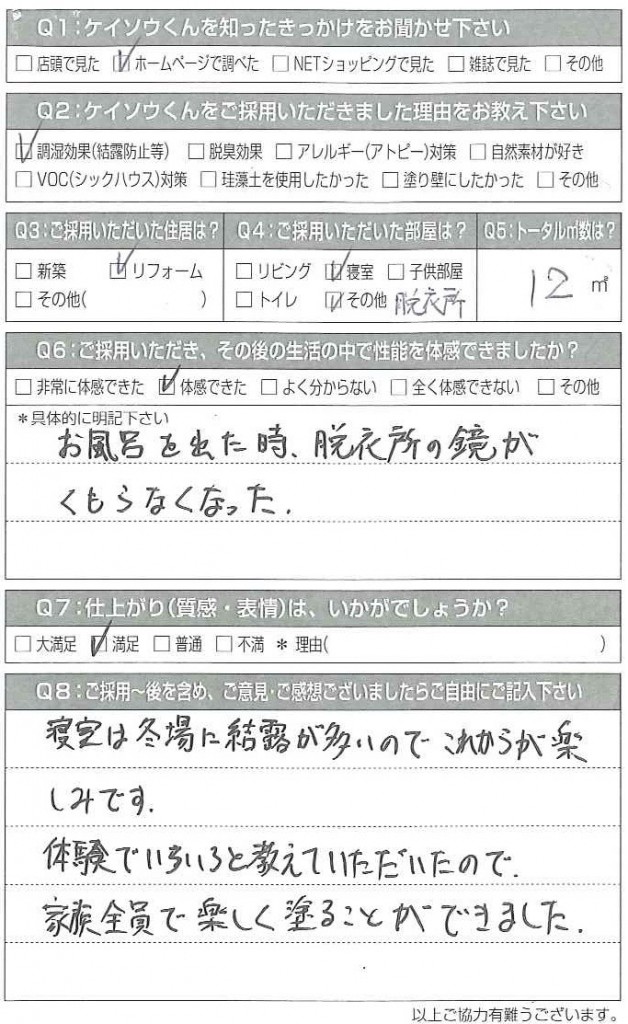 Q1:ケイソウくんを知ったきっかけをお聞かせ下さい
□店頭で見た ☑ホームページで調べた □NETショッピングで見た □雑誌で見た □その他
Q2:ケイソウくんをご採用いただきました理由をお教え下さい
☑調湿効果(結露防止等) □脱臭効果 □アレルギー(アトピー)対策 □自然素材が好き
□VOC(シックハウス)対策 □珪藻土を使用したかった □塗り壁にしたかった □その他
Q3:ご採用いただいた住居は? Q4:ご採用いただいた部屋は? Q5:トータル㎡数は?
□新築 ☑リフォーム □リビング ☑寝室 □子供部屋 12㎡
□その他( ) □トイレ ☑その他 脱衣所
Q6:ご採用いただき、その後の生活の中で性能を体感できましたか?
□非常に体感できた ☑体感できた □よく分からない □全く体感できない □その他
*具体的に明記下さい
お風呂を出た時、脱衣所の鏡が
くもらなくなった.
Q7:仕上がり(質感・表情)は、いかがでしょうか?
□大満足 ☑満足 □普通 □不満 *理由( )
Q8:ご採用〜後を含め、ご意見・ご感想ございましたらご自由にご記入下さい
寝室は冬場に結露が多いのでこれからが楽
しみです.
体験でいろいろと教えていただいたので.
家族全員で楽しく塗ることができました.
以上ご協力有難うございます。